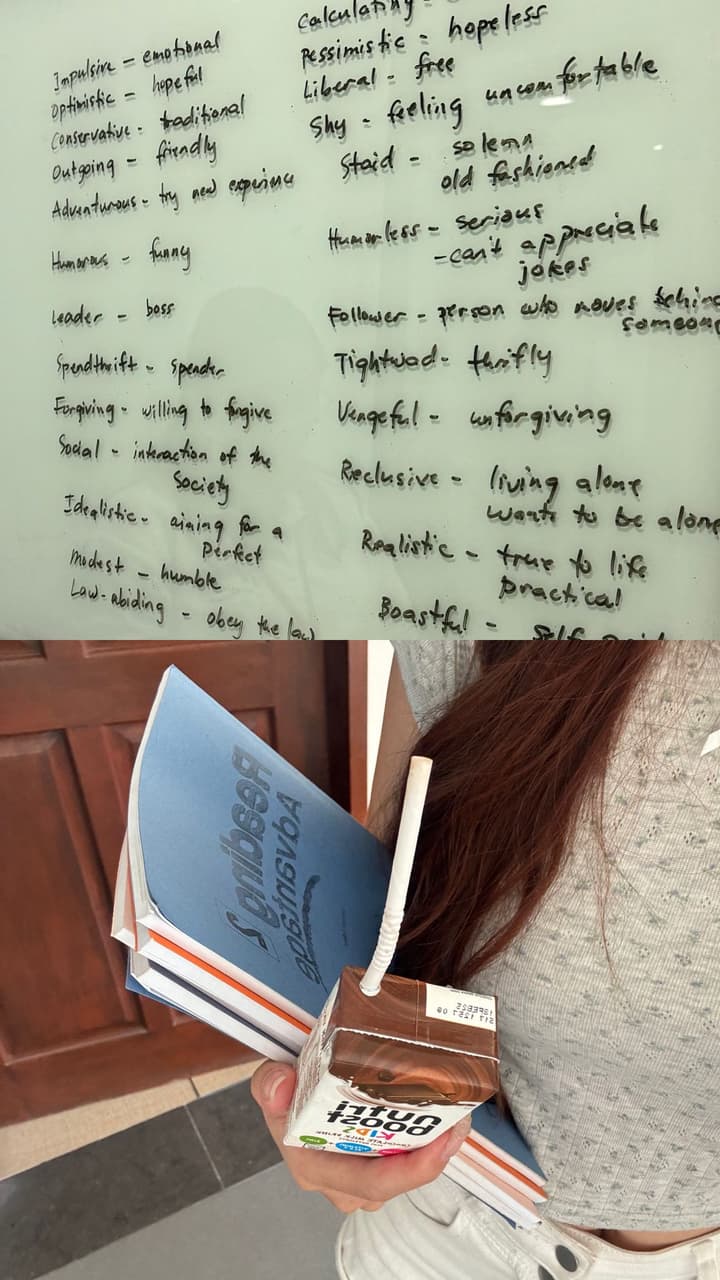 Impulsive = emotional
Optimistic = hopeful
Conservative - traditional
Outgoing = friendly
Adventurous - try new experience
Humorous - funny
Leader - boss
Spendthrift - spender
Forgiving - willing to forgive
Social - interaction of the
Society
Idealistic - aiming for a
Perfect
Modest - humble
Law-abiding - obey the law
Calculating -
Pessimistic = hopeless
Liberal - free
Shy - feeling uncomfortable
Staid - solemn
old fashioned
Humorless - serious
-can't appreciate
jokes
Follower - person who moves behind
someon
Tightwad - thrifly
Vengeful - unforgiving
Reclusive - living alone
wants to be alone
Realistic - true to life
practical
Boastful - self
Reading
Advantage
2
nutri
boost
KIDZ